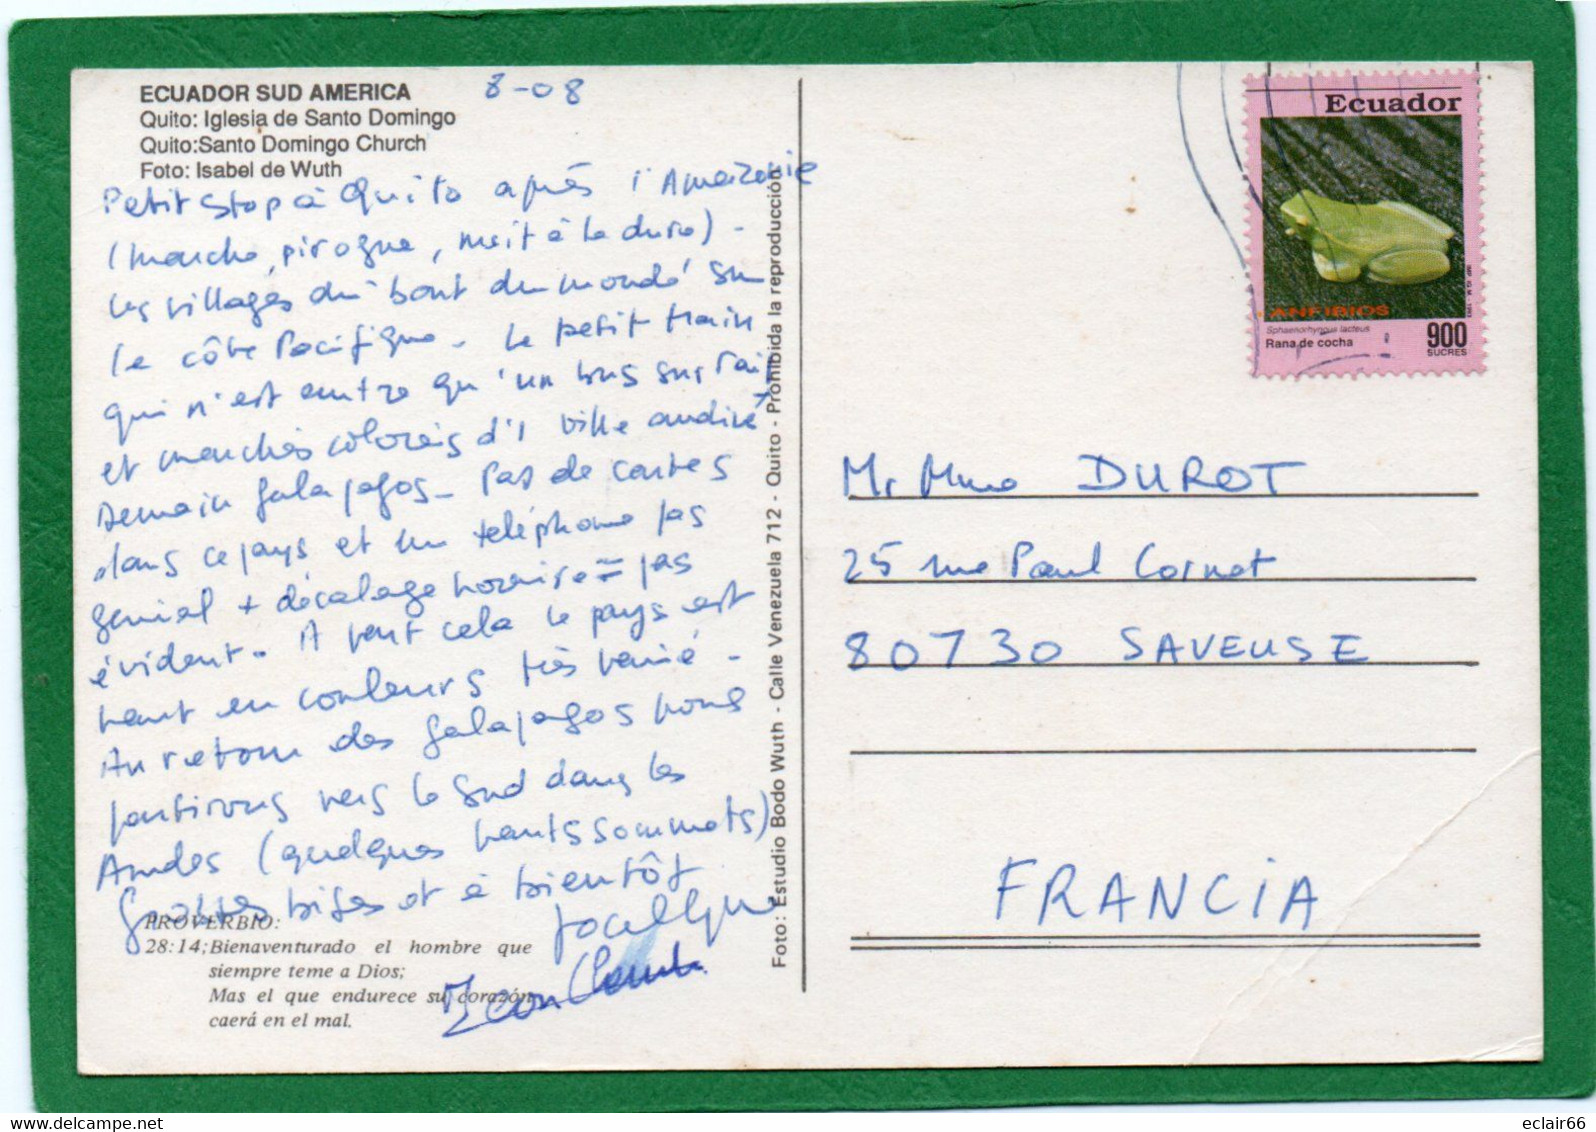 ECUADOR SUD AMERICA
8-08
Quito: Iglesia de Santo Domingo
Quito:Santo Domingo Church
Foto: Isabel de Wuth
Petit stop à Quito après l'Amazonie
(marche, pirogue, nuit à la dure) -
les villages du bout du monde sur
la côte Pacifique. Le petit train
qui n'est autre qu'un bus sur rail
et marchés colorés d'1 ville andine
Demain Galapagos - Pas de cartes
dans ce pays et un téléphone pas
genial + décalage horaire = pas
évident. A part cela le pays est
haut en couleurs très varié -
Au retour des Galapagos nous
partirons vers le Sud dans les
Andes (quelques hauts sommets)
Grosses bises et à bientôt
Jocelyne
Jean Claude
PROVERBIO:
28:14;Bienaventurado el hombre que
siempre teme a Dios;
Mas el que endurece su corazón
caerá en el mal.
Foto: Estudio Bodo Wuth - Calle Venezuela 712 - Quito - Prohibida la reproducción
Ecuador
ANFIBIOS
Sphaenorhynchus lacteus
Rana de cocha
900
SUCRES
Mr Mme DUROT
25 rue Paul Cornet
80730 SAVEUSE
FRANCiA
delcampe.net
eclair66